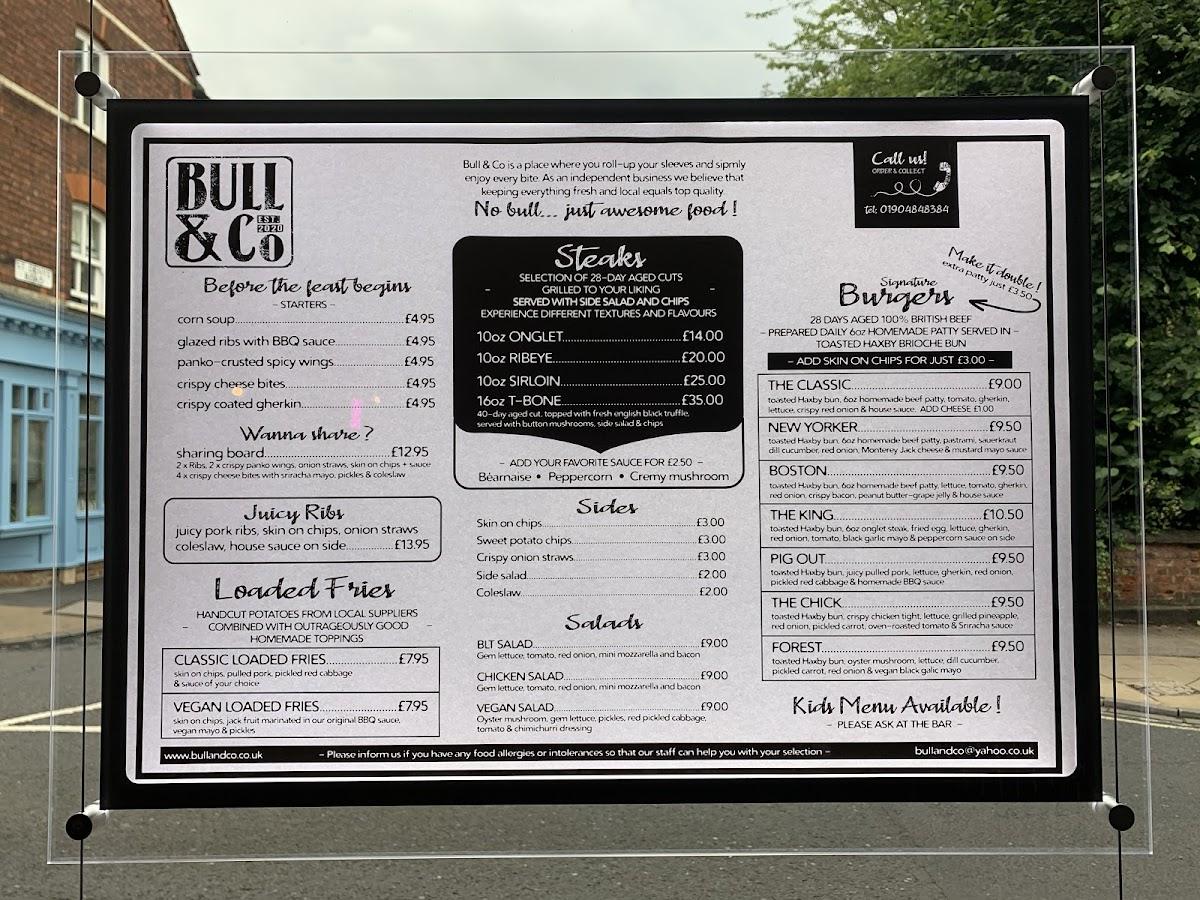 BULL
& Co
EST.
2020
Before the feast begins
- STARTERS -
corn soup...£4.95
glazed ribs with BBQ sauce...£4.95
panko-crusted spicy wings...£4.95
crispy cheese bites...£4.95
crispy coated gherkin...£4.95
Wanna share?
sharing board...£12.95
2 x Ribs, 2 x crispy panko wings, onion straws, skin on chips + sauce
4 x crispy cheese bites with sriracha mayo, pickles & coleslaw
Juicy Ribs
juicy pork ribs, skin on chips, onion straws
coleslaw, house sauce on side...£13.95
Loaded Fries
HANDCUT POTATOES FROM LOCAL SUPPLIERS
- COMBINED WITH OUTRAGEOUSLY GOOD -
HOMEMADE TOPPINGS
CLASSIC LOADED FRIES...£7.95
skin on chips, pulled pork, pickled red cabbage
& sauce of your choice
VEGAN LOADED FRIES...£7.95
skin on chips, jack fruit marinated in our original BBQ sauce,
vegan mayo & pickles
Bull & Co is a place where you roll-up your sleeves and sipmly
enjoy every bite. As an independent business we believe that
keeping everything fresh and local equals top quality.
No bull... just awesome food!
Steaks
SELECTION OF 28-DAY AGED CUTS
- GRILLED TO YOUR LIKING -
SERVED WITH SIDE SALAD AND CHIPS
EXPERIENCE DIFFERENT TEXTURES AND FLAVOURS
10oz ONGLET...£14.00
10oz RIBEYE...£20.00
10oz SIRLOIN...£25.00
16oz T-BONE...£35.00
40-day aged cut, topped with fresh english black truffle,
served with button mushrooms, side salad & chips
- ADD YOUR FAVORITE SAUCE FOR £2.50 -
Béarnaise • Peppercorn • Cremy mushroom
Sides
Skin on chips...£3.00
Sweet potato chips...£3.00
Crispy onion straws...£3.00
Side salad...£2.00
Coleslaw...£2.00
Salads
BLT SALAD...£9.00
Gem lettuce, tomato, red onion, mini mozzarella and bacon
CHICKEN SALAD...£9.00
Gem lettuce, tomato, red onion, mini mozzarella and bacon
VEGAN SALAD...£9.00
Oyster mushroom, gem lettuce, pickles, red pickled cabbage,
tomato & chimichurri dressing
Call us!
ORDER & COLLECT
tel: 01904848384
Make it double!
extra patty just £3.50
Signature
Burgers
28 DAYS AGED 100% BRITISH BEEF
- PREPARED DAILY 6oz HOMEMADE PATTY SERVED IN -
TOASTED HAXBY BRIOCHE BUN
- ADD SKIN ON CHIPS FOR JUST £3.00 -
THE CLASSIC...£9.00
toasted Haxby bun, 6oz homemade beef patty, tomato, gherkin,
lettuce, crispy red onion & house sauce. ADD CHEESE £1.00
NEW YORKER...£9.50
toasted Haxby bun, 6oz homemade beef patty, pastrami, sauerkraut
dill cucumber, red onion, Monterey Jack cheese & mustard mayo sauce
BOSTON...£9.50
toasted Haxby bun, 6oz homemade beef patty, lettuce, tomato, gherkin,
red onion, crispy bacon, peanut butter-grape jelly & house sauce
THE KING...£10.50
toasted Haxby bun, 6oz onglet steak, fried egg, lettuce, gherkin,
red onion, tomato, black garlic mayo & peppercorn sauce on side
PIG OUT...£9.50
toasted Haxby bun, juicy pulled pork, lettuce, gherkin, red onion,
pickled red cabbage & homemade BBQ sauce
THE CHICK...£9.50
toasted Haxby bun, crispy chicken tight, lettuce, grilled pineapple,
red onion, pickled carrot, oven-roasted tomato & Sriracha sauce
FOREST...£9.50
toasted Haxby bun, oyster mushroom, lettuce, dill cucumber,
pickled carrot, red onion & vegan black galic mayo
Kids Menu Available!
- PLEASE ASK AT THE BAR -
www.bullandco.co.uk - Please inform us if you have any food allergies or intolerances so that our staff can help you with your selection - bullandco@yahoo.co.uk